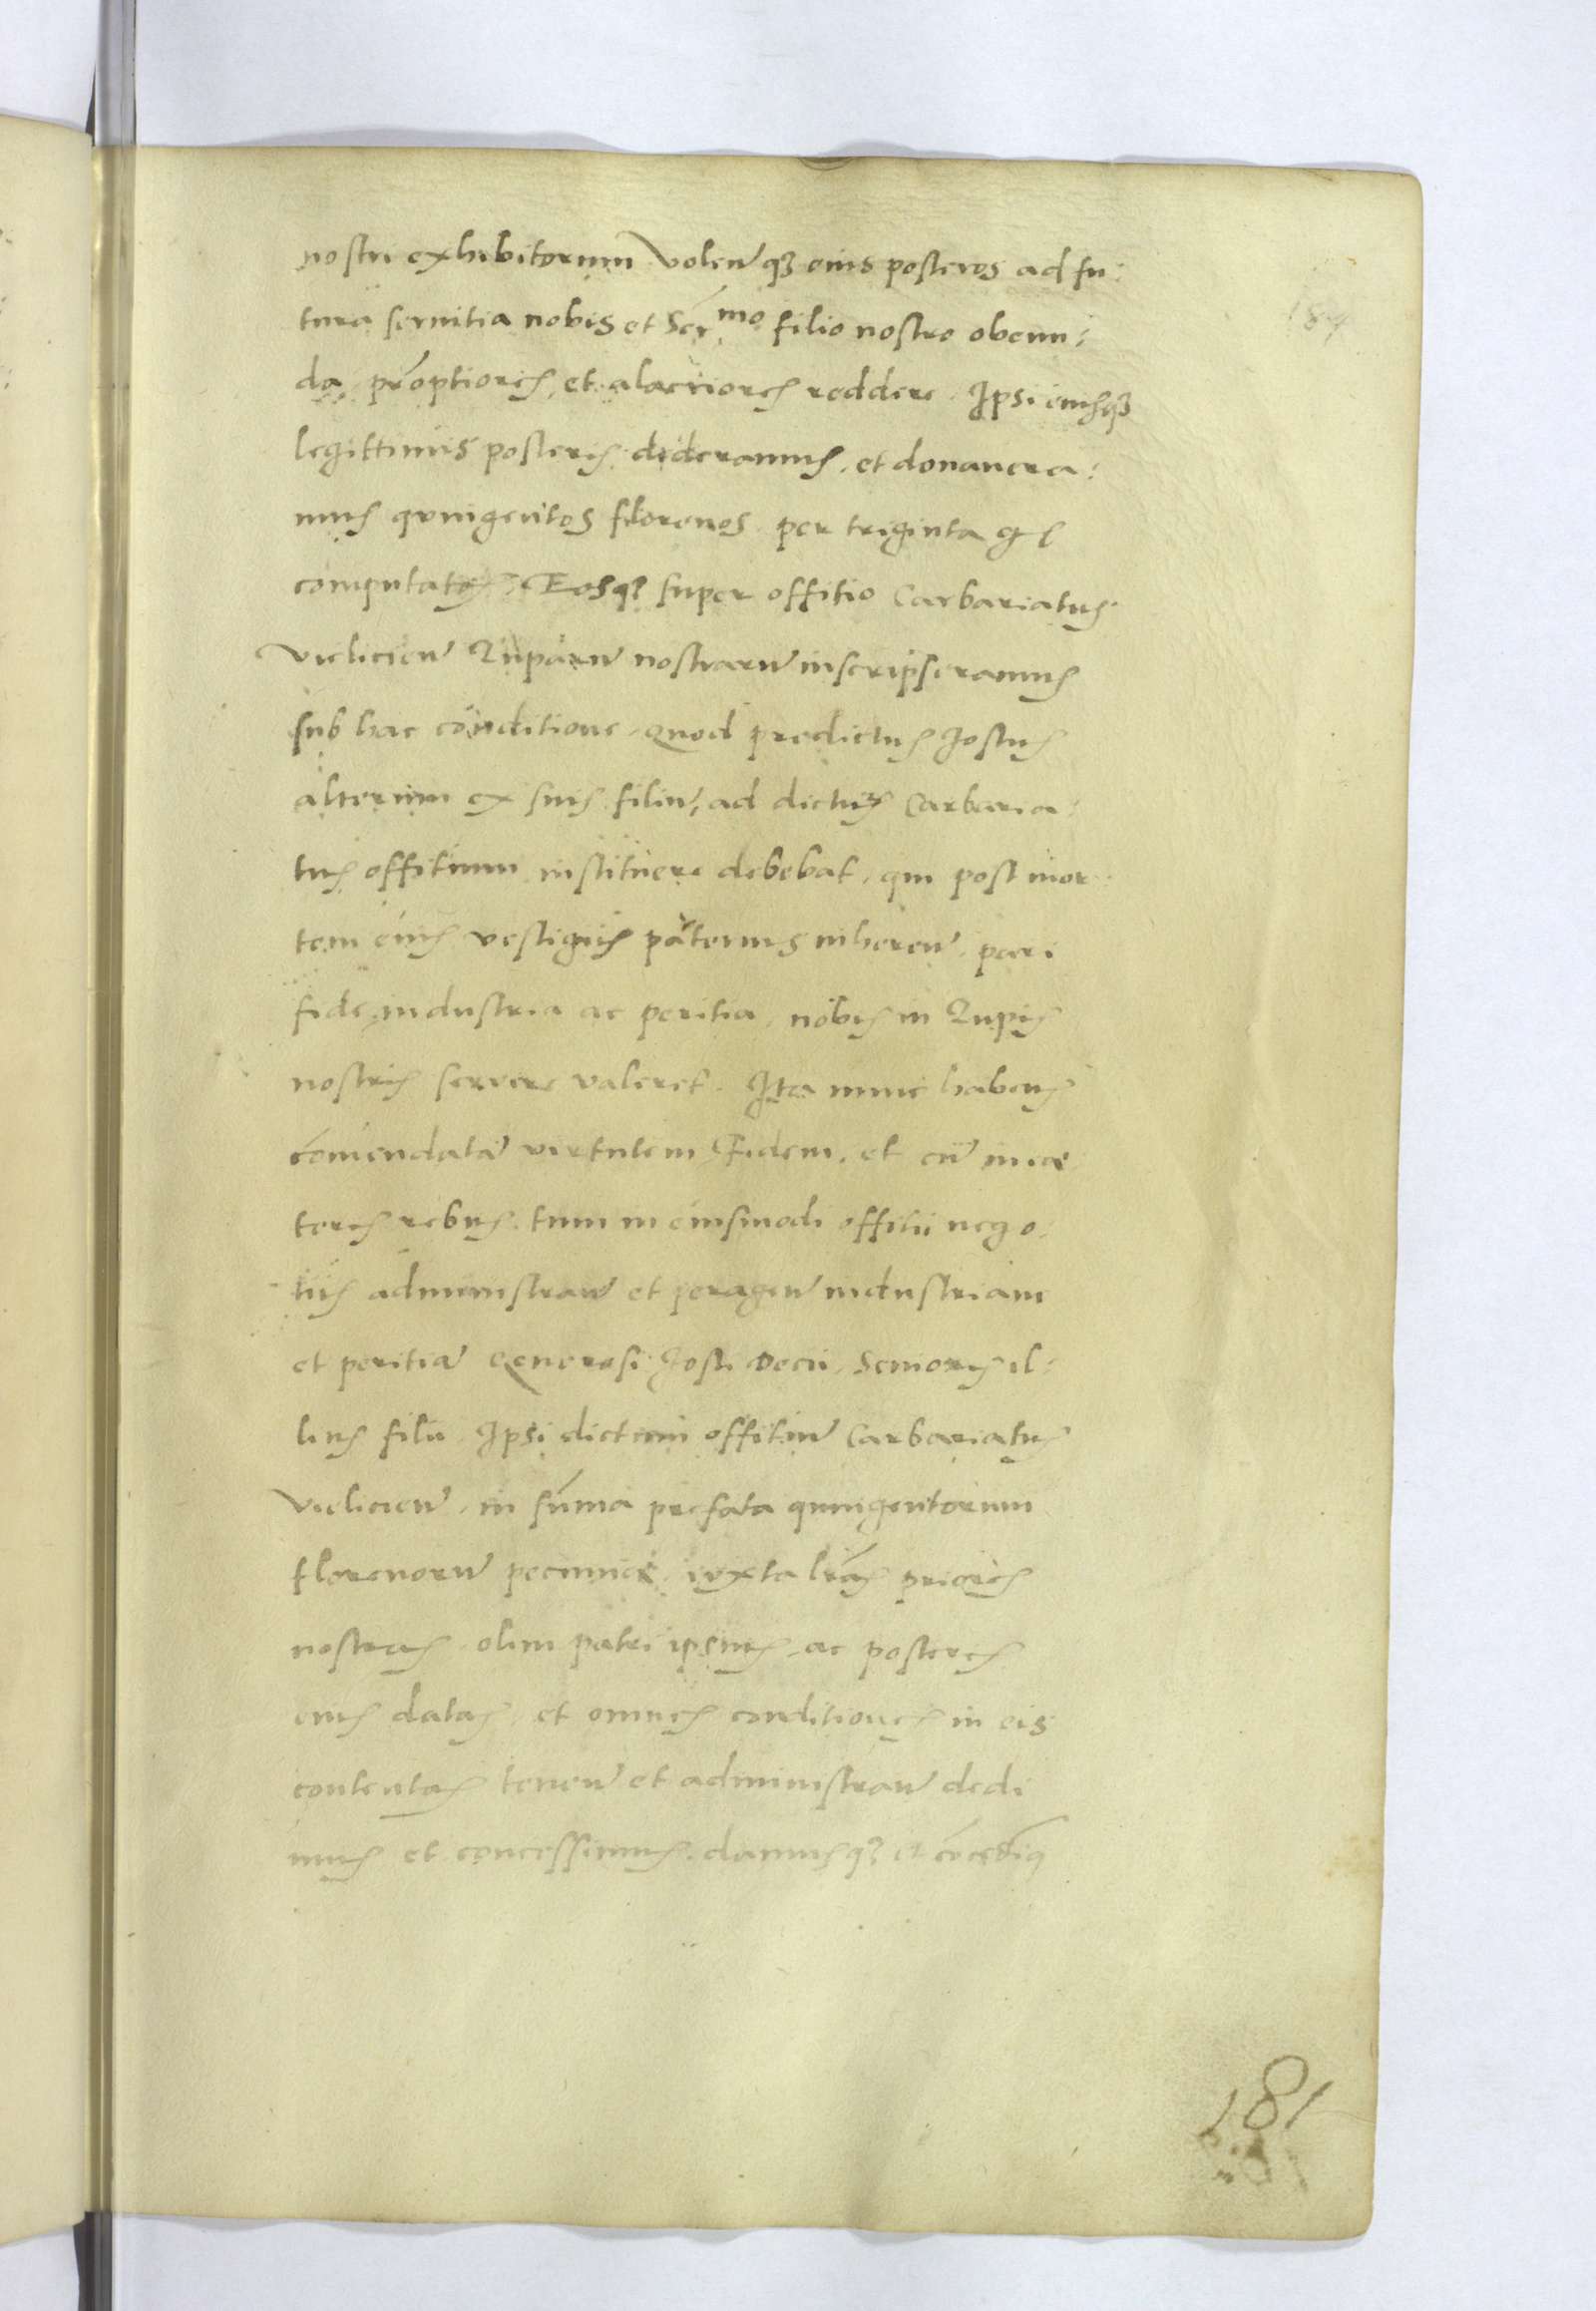 nostri exhibitorum Volen̄ qʒ eius posteros ad fu:
tura seruitia nobis et Ser̄mo filio nostro obeun:
da, prōptiores, et alacriores reddere. Ipsi eiusqʒ
legittimis posteris dideramus, et donauera:
mus quingentos florenos per triginta gͬ
computatos, Eosqʒ super offitio Carbariatus
Vieliciēn̄ Zuparū nostrarū inscripseramus
sub hac cōnditione, quod predictus Jostus
alterum ex suis filiū, ad dictum Carbaria:
tus offitium instituere debebat, qui post mor
tem eius vestigiis paternis inheren̄, pari
fide, industria ac peritia, nobis in Zupis
nostris seruire valeret. Ita nunc habentes
comendatā virtutem Fidem, et cū in cę
teris rebus, tum in eiusmodi offitii nego:
tiis administran̄ et peragen̄ industriam
et peritiā Generosi Josti Decii, Senioris il:
lius filii, Ipsi dictum offitiū Carbariatus
Vielicien̄, in sūma prefata quingentorum
florenorū pecunięs, iuxta lr̄as priores
nostras, olim patri ipsius, ac posteris
eius datas, et omnes conditiones in eis
contentas tenen̄ et administran̄ dedi
mus et concessimus, damusqʒ et cōcedimus
187
187